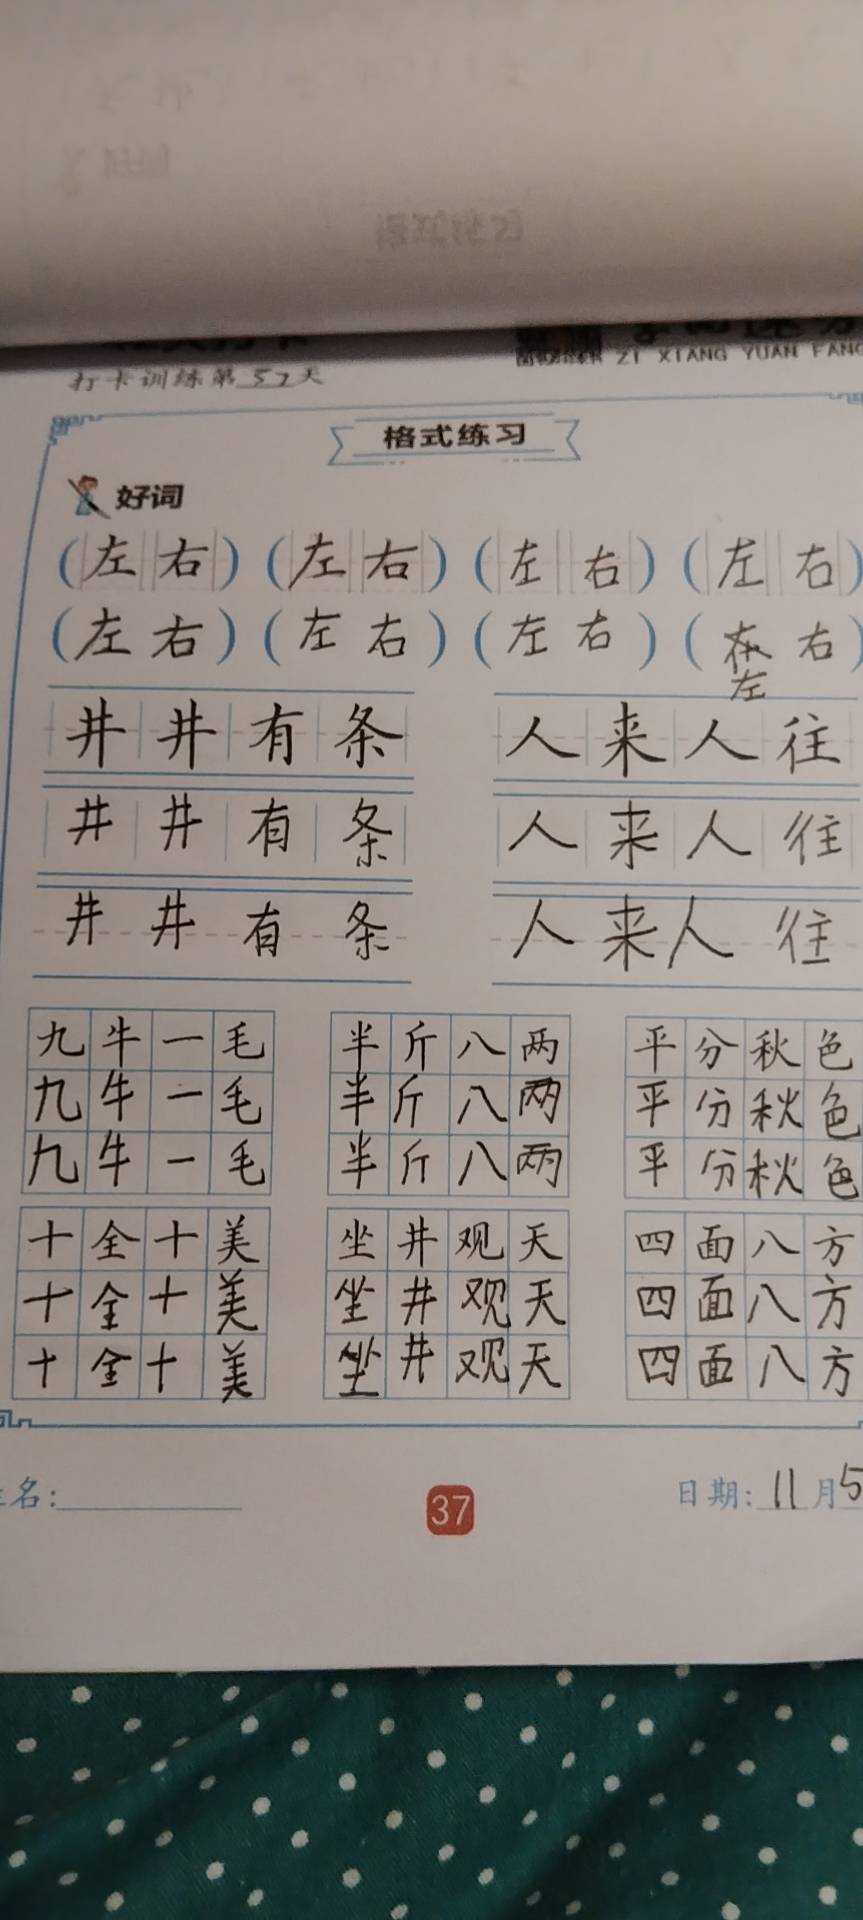 ZI XIANG YUAN FANG
打卡训练第57天
格式练习
好词
(左右) (左右) (左右) (左右)
(左右) (左右) (左右) (右)
左
井井有条 人来人往
井井有条 人来人往
井井有条 人来人往
九牛一毛 半斤八两 平分秋色
九牛一毛 半斤八两 平分秋色
九牛一毛 半斤八两 平分秋色
十全十美 坐井观天 四面八方
十全十美 坐井观天 四面八方
十全十美 坐井观天 四面八方
名: 37 日期: 11月5